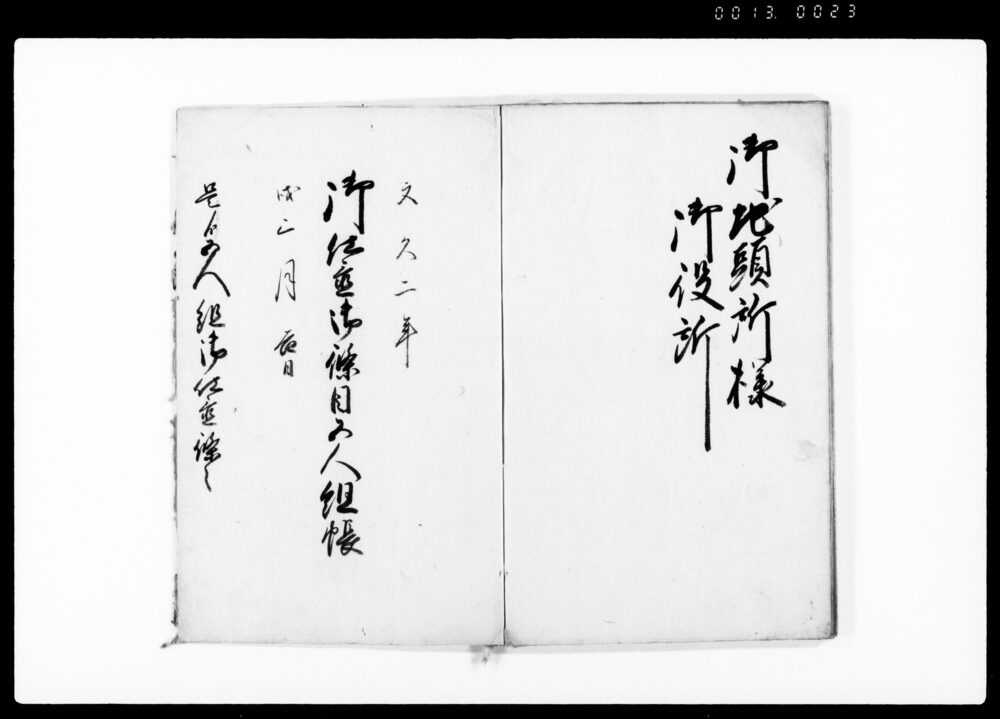 0013. 0023
御地頭所様
御役所
文久二年
御仕置御條目五人組帳
戌三月
五人組御仕置條々